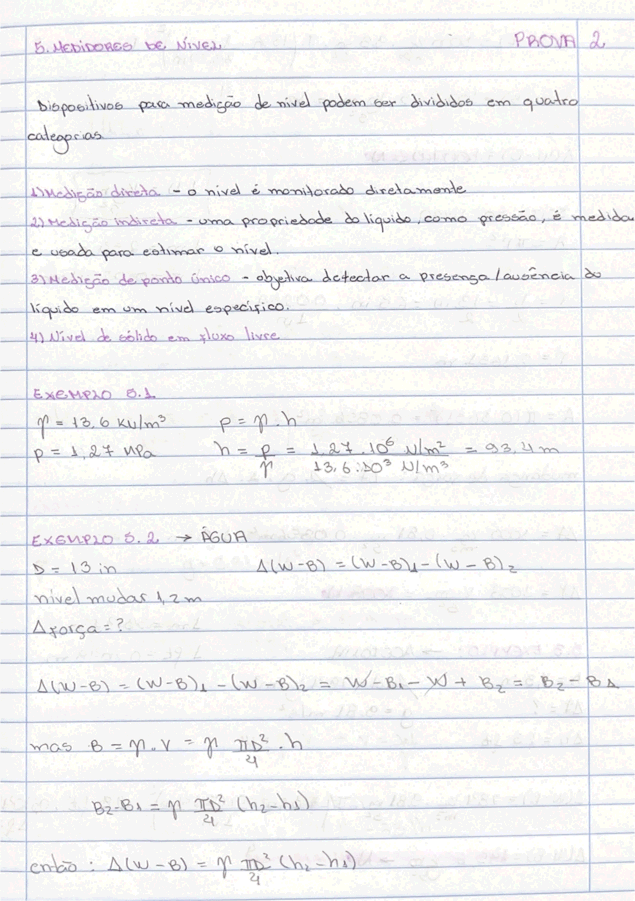 5. MEDIDORES DE NÍVEL PROVA 2
Dispositivos para medição de nível podem ser divididos em quatro
categorias
1) Medição direta - o nível é monitorado diretamente
2) Medição indireta - uma propriedade do líquido, como pressão, é medida
e usada para estimar o nível.
3) Medição de ponto único - objetiva detectar a presença/ausência do
líquido em um nível específico.
4) Nível de sólido em fluxo livre
EXEMPLO 5.1
γ = 13,6 kN/m³ p = γ . h
p = 1,27 MPa h = p/γ = 1,27 . 10⁶ N/m² / 13,6 . 10³ N/m³ = 93,4 m
EXEMPLO 5.2 → ÁGUA
D = 13 in Δ(W-B) = (W-B)₁ - (W-B)₂
nível mudar 1,2 m
Δ força = ?
Δ(W-B) = (W-B)₁ - (W-B)₂ = W - B₁ - W + B₂ = B₂ - B₁
mas B = γ . V = γ πD²/4 . h
B₂-B₁ = γ πD²/4 (h₂-h₁)
então : Δ(W-B) = γ πD²/4 (h₂-h₁)